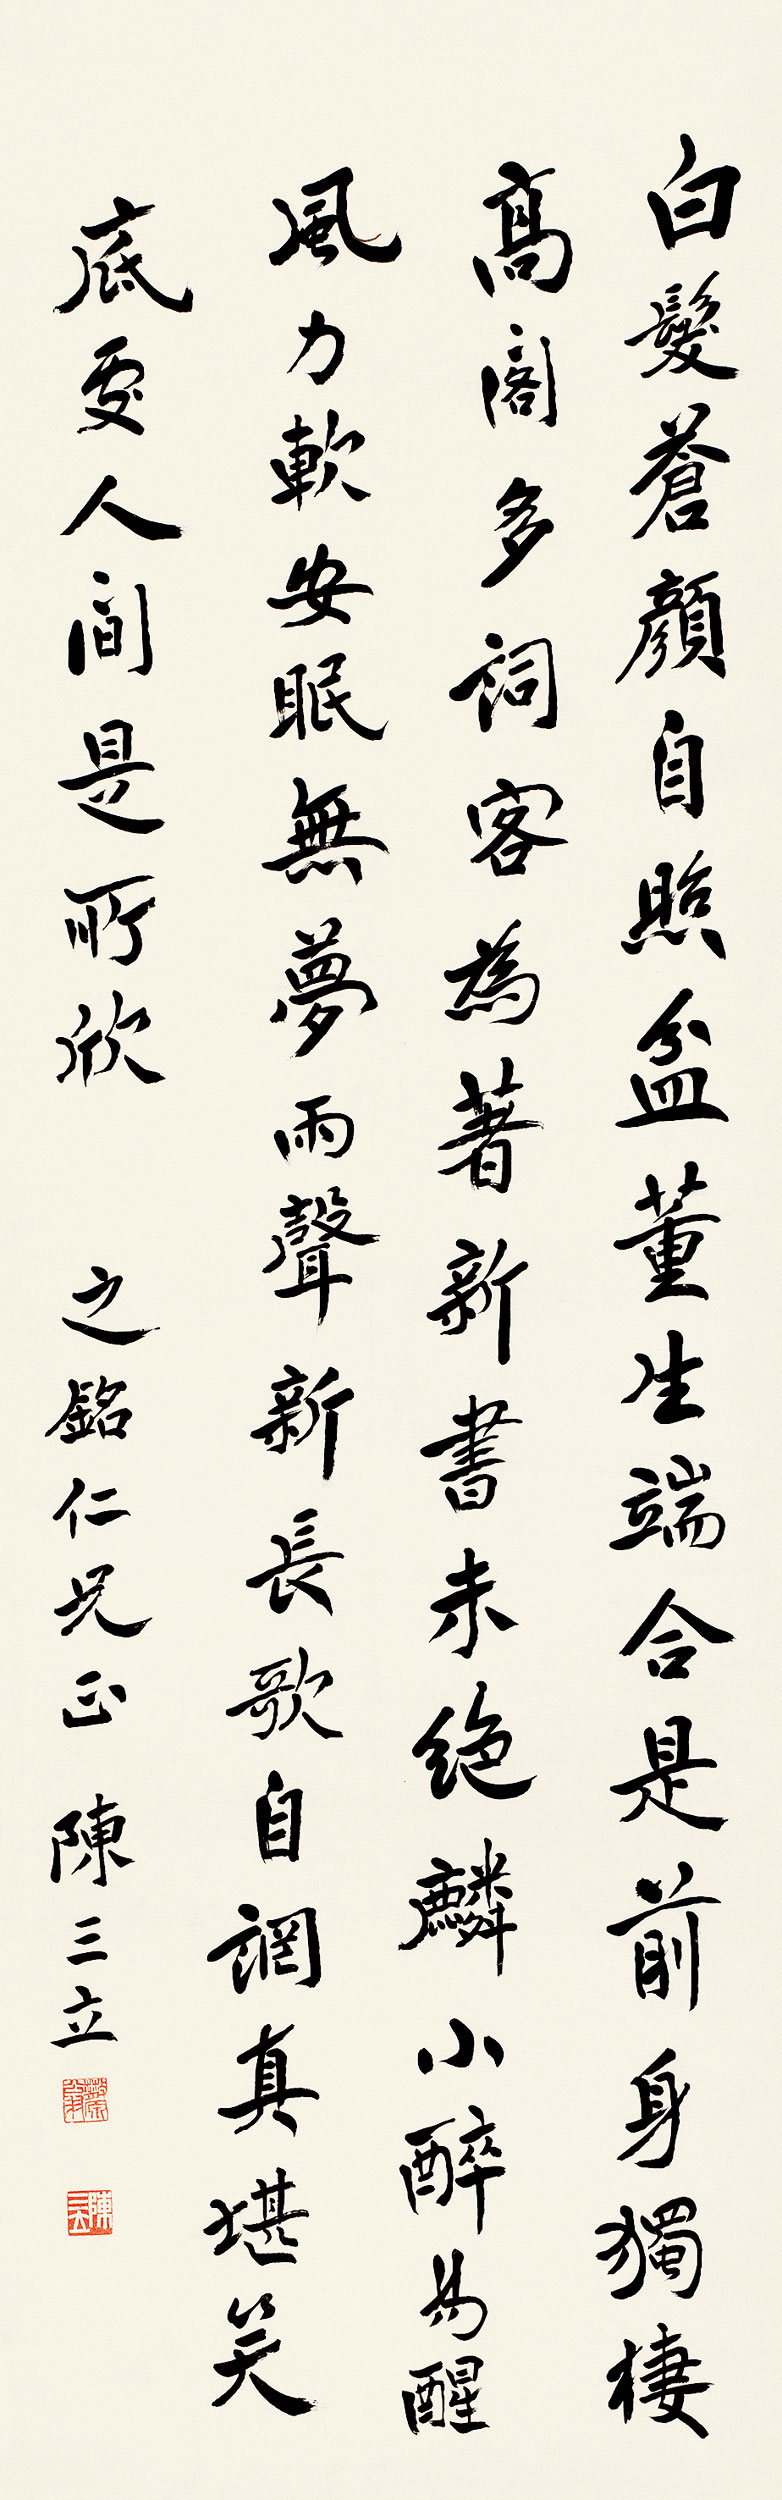 白髮蒼顏自照盆董生端合是前身獨棲
高閣多詞客為著新書未絕麟小醉易醒
風力軟安眠無夢雨聲新長歌自誷真堪笑
底處人間是所欣
之銘仁兄正 陳三立
陳三立